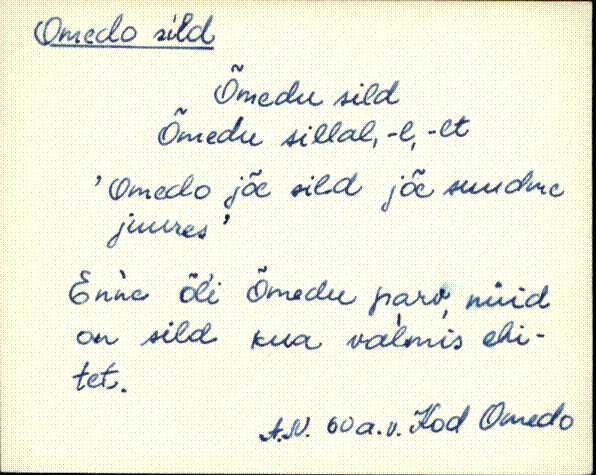 Omedo sild
Õmedu sild
Õmedu sillal, -l, -lt
'Omedo jõe sild jõe suudme
juures'
Enne õli Õmedu parv, nüid
on sild kua valmis ehi-
tet.
A.N. 60 a.v. Kod Omedo